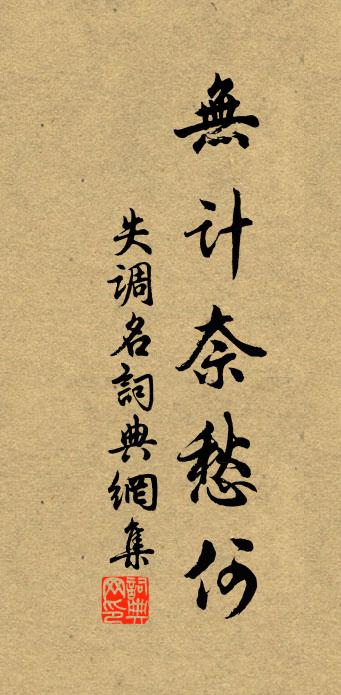 無计奈愁何
失调名詞典網集
詞典网印